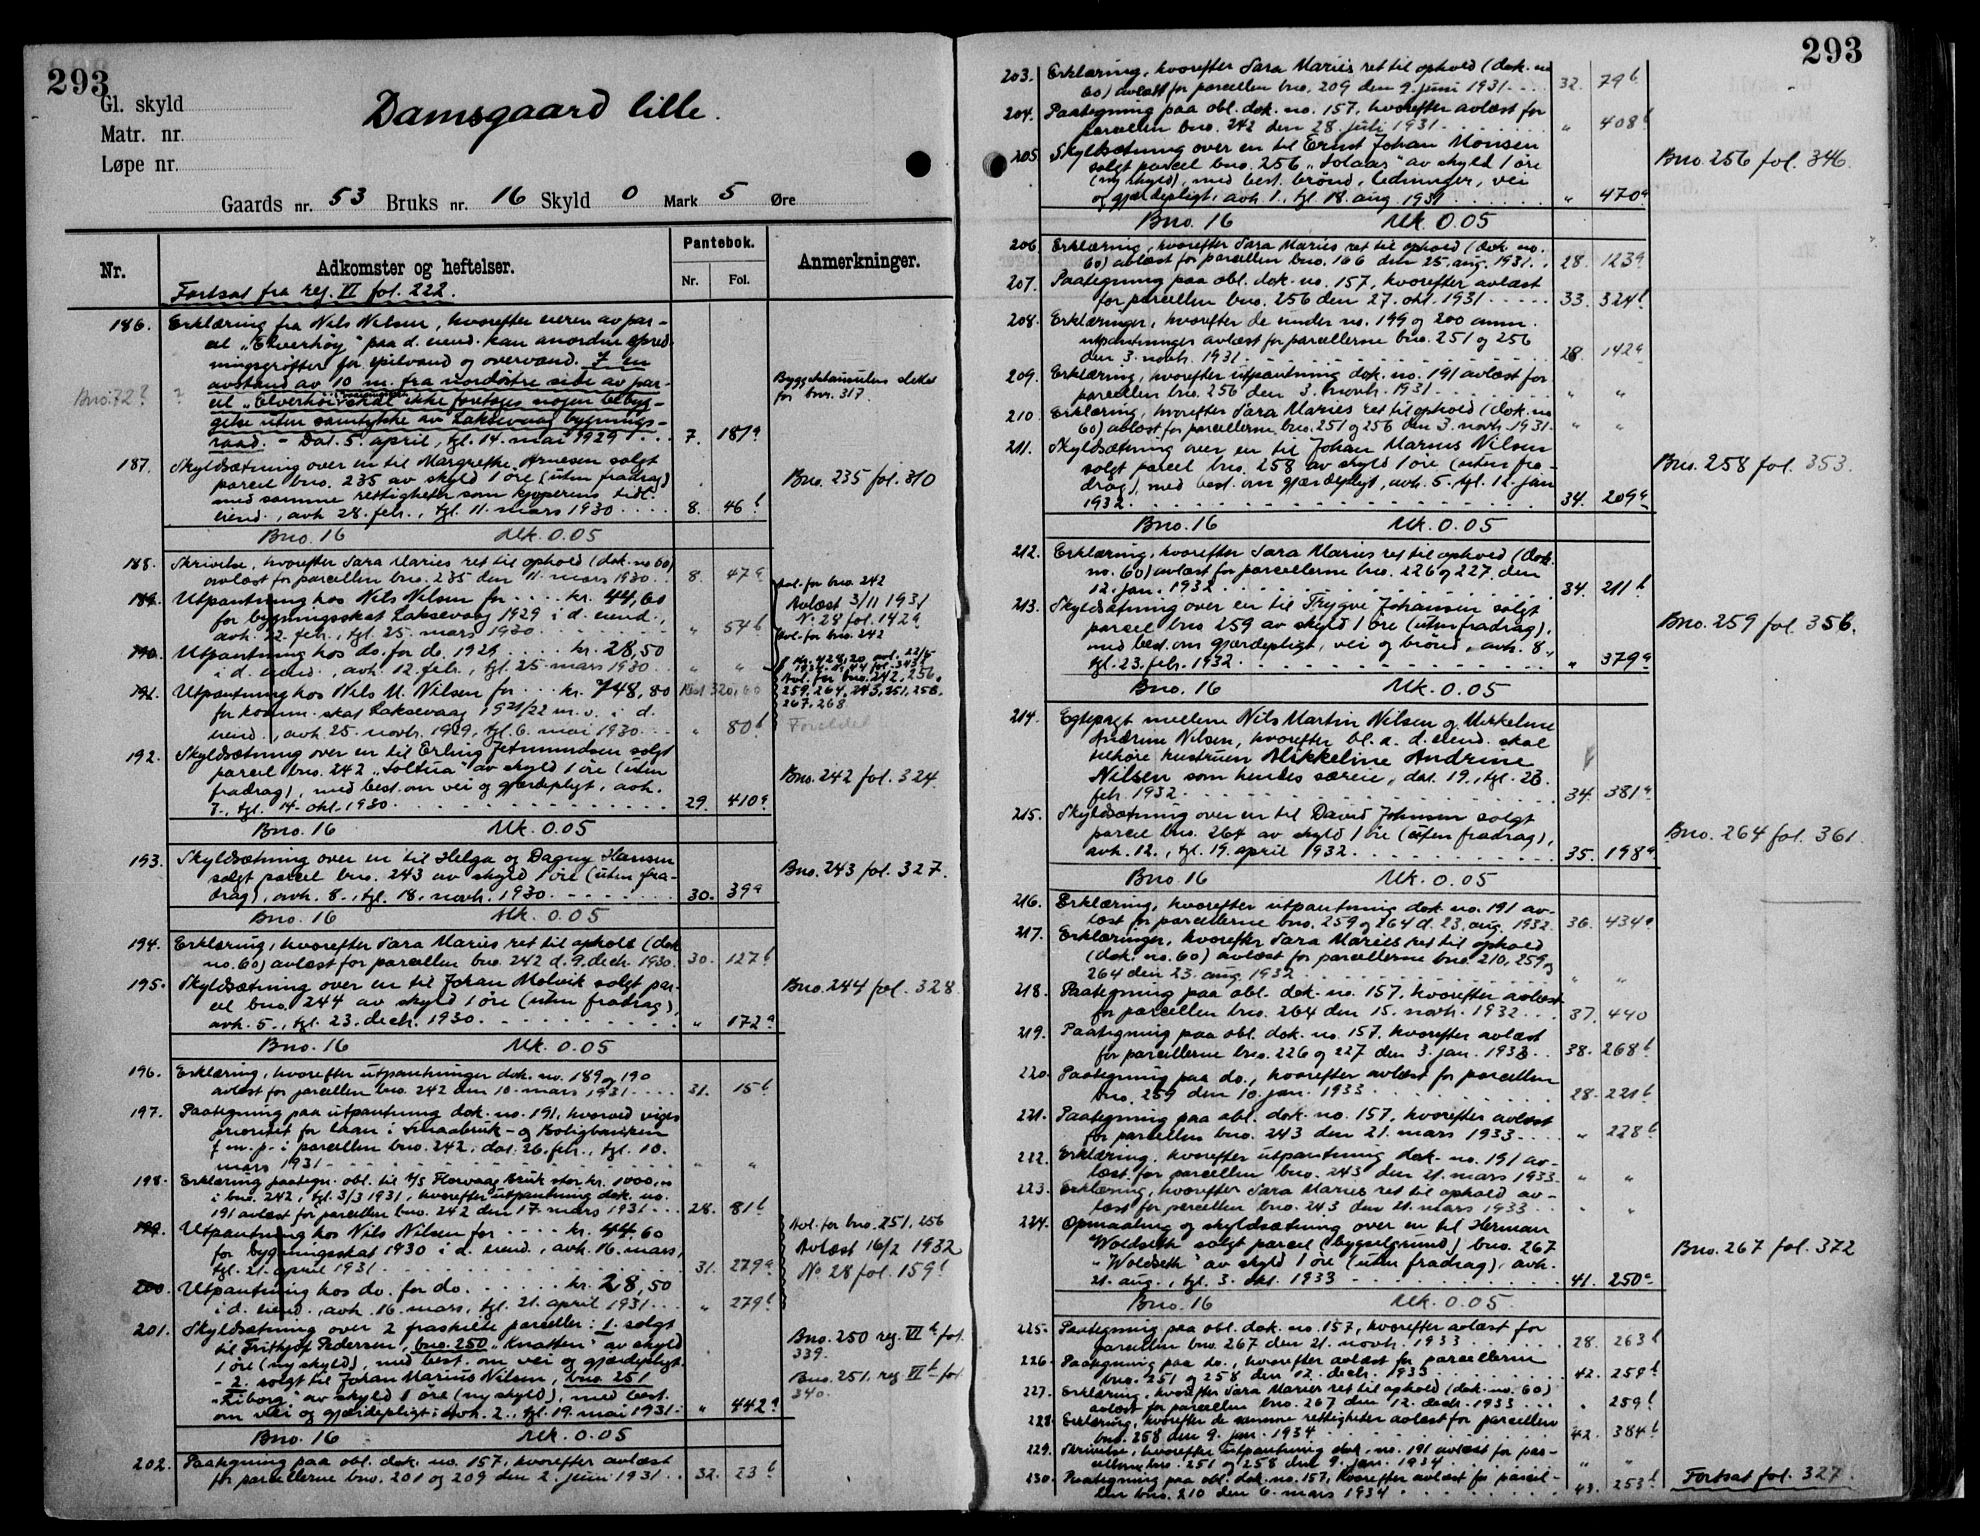 293
Gl. skyld
Matr. nr.
Løpe nr.
Damsgaard lille.
Gaards nr. 53 Bruks nr. 16 Skyld 0 Mark 5 Øre
Nr.
Adkomster og heftelser.
Pantebok.
Nr. Fol.
Anmerkninger.
Fortsat fra reg. VI fol. 222.
186. Erklæring fra Nils Nilsen, hvorefter eieren av par-
cel "Elverhøy" paa d. eiend. kan anordne spred-
ningsgrøfter for spilvand og overvand. I en
avstand av 10 m. fra nordøstre side av par-
Bno. 72? ?
cel "Elverhøi" skal ikke foretages nogen bebyg-
gelse uten samtykke av Laksevaag bygnings-
raad. - Dat. 5. april, tgl. 14. mai 1929 7. 181a
Byggeklausulen slettet
for bnr. 317.
187. Skyldsætning over en til Margrethe Arnesen solgt
parcel bno. 235 av skyld 1 øre (uten fradrag)
med samme rettigheter som kjøperens tidl.
eiend., avh. 28. febr., tgl. 11. mars 1930 8. 46b
Bno. 235 fol. 310
Bno. 16 Mk. 0.05
188. Skrivelse, hvorefter Sara Maries ret til ophold (dok. no 60)
avlæst for parcellen bno. 235 den 11. mars 1930 8. 47a
189. Utpantning hos Nils Nilsen for kr. 44,60
for bygningsskat Laksevaag 1929 i d. eiend.,
avh. 12. febr., tgl. 25. mars 1930 " 54b
Avl. for bno. 242
Avlæst 3/11 1931
No 28 fol. 142a
190. Utpantning hos do. for do. 1929 kr. 28,50
i d. eiend., avh. 12. febr., tgl. 25. mars 1930 " "
Avl. for bno. 242
191. Utpantning hos Nils M. Nilsen for kr. 748,80
for komm. skat Laksevaag 1921/22 m.v. i d.
eiend., avh. 25. novbr. 1929, tgl. 6. mai 1930 " 80b
Rest 320,60
Avl. for bno. 242, 256,
259, 264, 243, 251, 258,
267, 268
Foreldet
192. Skyldsætning over en til Erling Jetmundsen solgt
parcel bno. 242 "Soltua" av skyld 1 øre (uten
fradrag), med best. om vei og gjærdepligt, avh.
7., tgl. 14. okt. 1930 29. 410a
Bno. 242 fol. 324.
Bno. 16 Mk. 0.05
193. Skyldsætning over en til Helga og Dagny Hansen
solgt parcel bno. 243 av skyld 1 øre (uten fra-
drag), avh. 8., tgl. 18. novbr. 1930 30. 39a
Bno. 243 fol. 327.
Bno. 16 Mk. 0.05
194. Erklæring, hvorefter Sara Maries ret til ophold (dok
no. 60) avlæst for parcellen bno. 242 d. 9. decbr. 1930. 30. 127b
195. Skyldsætning over en til Johan Molvik solgt par-
cel bno. 244 av skyld 1 øre (uten fradrag),
avh. 5., tgl. 23. decbr. 1930 " 172a
Bno. 244 fol. 328.
Bno. 16 Mk. 0.05
196. Erklæring, hvorefter utpantninger dok. no. 189 og 190
avlæst for parcellen bno. 242 den 10. mars 1931 31. 15b
197. Paategning paa utpantning dok. no. 191, hvorved viges
prioritet for laan i Smaabruk- og Boligbanken
f. m. p. i parcellen bno. 242, dat. 26. febr., tgl. 10.
mars 1931 " "
198. Erklæring paategn. obl. til A/S Florvaag Bruk stor kr. 1000,00
i bno. 242, tgl. 3/3 1931, hvorefter utpantning dok. no.
191 avlæst for parcellen bno. 242 den 17. mars 1931 28. 81b
199. Utpantning hos Nils Nilsen for kr. 44,60
for bygningsskat 1930 i d. eiend., avh. 16. mars,
tgl. 21. april 1931 31. 279a
Avl. for bno. 251, 256
Avlæst 16/2 1932
No 28 fol. 159b
200. Utpantning hos do. for do. kr. 28,50
i d. eiend., avh. 16. mars, tgl. 21. april 1931 " 279b
201. Skyldsætning over 2 fraskilte parceller: 1. solgt
til Frithjof Pedersen, bno. 250 "Knatten" av skyld
1 øre (ny skyld), med best. om vei og gjærdepligt.
- 2. solgt til Johan Marius Nilsen, bno. 251
"Liborg" av skyld 1 øre (ny skyld), med best.
om vei og gjærdepligt; avh. 2., tgl. 19. mai 1931 " 442a
Bno. 250 reg. VIIb fol.
339.
Bno. 251. reg VIIb fol
340.
Bno. 16 Mk. 0.05
202. Paategning paa obl. dok. no. 157, hvorefter avlæst
for parcellerne bno. 201 og 209 den 2. juni 1931 32. 23b
293
203. Erklæring, hvorefter Sara Maries ret til ophold (dok. no
60) avlæst for parcellen bno. 209 den 9. juni 1931 32. 79b
204. Paategning paa obl. dok. no. 157, hvorefter avlæst for
parcellen bno. 242 den 28. juli 1931 " 408b
205. Skyldsætning over en til Ernst Johan Monsen
solgt parcel bno. 256 "Solaas" av skyld 1 øre
(ny skyld), med best. brønd, ledninger, vei
og gjærdepligt, avh. 1., tgl. 18. aug. 1931 " 470a
Bno. 256 fol. 346.
Bno. 16 Mk. 0.05
206. Erklæring, hvorefter Sara Maries ret til ophold (dok. no.
60) avlæst for parcellen bno. 166 den 25. aug. 1931 28. 123a
207. Paategning paa obl. dok. no. 157, hvorefter avlæst
for parcellen bno. 256 den 27. okt. 1931 33. 324b
208. Erklæringer, hvorefter de under no. 199 og 200 anm.
utpantninger avlæst for parcellerne bno. 251 og 256
den 3. novbr. 1931 28. 142a
209. Erklæring, hvorefter utpantning dok. no. 191 avlæst for
parcellen bno. 256 den 3. novbr. 1931 " "
210. Erklæring, hvorefter Sara Maries ret til ophold (dok. no
60) avlæst for parcellerne bno. 251 og 256 den 3. novbr. 1931. " "
211. Skyldsætning over en til Johan Marius Nilsen
solgt parcel bno. 258 av skyld 1 øre (uten fra-
drag), med best. om gjærdepligt, avh. 5. tgl. 12. jan
1932 34. 209a
Bno. 258 fol. 353.
Bno. 16 Mk. 0.05
212. Erklæring, hvorefter Sara Maries ret til ophold (dok.
no. 60) avlæst for parcellerne bno. 226 og 227 den
12. jan. 1932 34. 211b
213. Skyldsætning over en til Trygve Johansen solgt
parcel bno 259 av skyld 1 øre (uten fradrag),
med best. om gjærdepligt, vei og brønd, avh. 8.,
tgl. 23. febr. 1932 " 379a
Bno. 259 fol. 356.
Bno. 16 Mk. 0.05
214. Egtepagt mellem Nils Martin Nilsen og Mikkeline
Andrine Nilsen, hvorefter bl. a. d. eiend. skal
tilhøre hustruen Mikkeline Andrine
Nilsen som hendes særeie, dat. 19., tgl. 23.
febr. 1932 34. 381a
215. Skyldsætning over en til David Johnsen solgt
parcel bno. 264 av skyld 1 øre (uten fradrag),
avh. 12., tgl. 19. april 1932 35. 198a
Bno. 264 fol. 361.
Bno. 16 Mk. 0.05
216. Erklæring, hvorefter utpantning dok. no. 191 av-
læst for parcellerne bno. 259 og 264 d. 23. aug. 1932. 36. 434a
217. Erklæringer, hvorefter Sara Maries ret til ophold
(dok. no. 60) avlæst for parcellerne bno. 210, 259 og
264 den 23. aug. 1932 " "
218. Paategning paa obl. dok. no. 157, hvorefter avlæst
for parcellen bno. 264 den 15. novbr. 1932 37. 440
219. Paategning paa obl. dok. no. 157, hvorefter avlæst
for parcellerne bno. 226 og 227 den 3. jan. 1933 38. 268b
220. Paategning paa do., hvorefter avlæst for parcellen
bno. 259 den 10. jan. 1933 28. 221b
221. Paategning paa obl. dok. no. 157, hvorefter avlæst
for parcellen bno. 243 den 21. mars 1933 " 228b
222. Erklæring, hvorefter utpantning dok. no. 191 av-
læst for parcellen bno. 243 den 21. mars 1933 " "
223. Erklæring, hvorefter Sara Maries ret til ophold av-
læst for parcellen bno. 243 den 21. mars 1933 " "
224. Opmaaling og skyldsætning over en til Herman
Woldseth solgt parcel (bygselgrund) bno. 267
"Woldseth" av skyld 1 øre (uten fradrag), avh.
21. aug., tgl. 3. okt. 1933 41. 250a
Bno. 267 fol. 372
Bno. 16 Mk. 0.05
225. Paategning paa obl. dok. no. 157, hvorefter avlæst for
parcellen bno. 267 den 21. novbr. 1933 28. 263b
226. Paategning paa do., hvorefter avlæst for parcellerne
bno. 251 og 258 den 12. decbr. 1933 42. 259b
227. Erklæring, hvorefter Sara Maries ret til ophold (dok. no. 60)
avlæst for parcellen bno. 267 den 12. decbr. 1933 " 259b
228. Erklæring, hvorefter de samme rettigheter avlæst for parcellen
bno. 258 den 9. jan. 1934 42. 384b
229. Skrivelse, hvorefter utpantning dok. no. 191 avlæst for par-
cellerne bno. 251 og 258 den 9. jan. 1934 " "
230. Paategning paa obl. dok. no. 157, hvorefter avlæst for parcel-
len bno. 210 den 6. mars 1934 43. 253b
Fortsat fol. 327.